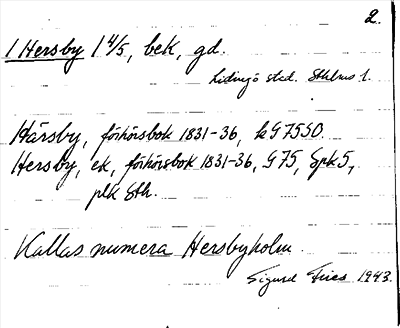 2.
1 Hersby 1 4/5, bek, gd.
Lidingö stad. Sthlms l.
Härsby, förhörsbok 1831-36, G7550.
Hersby, ek, förhörsbok 1831-36, G75, Spk5,
plk Sth.
Kallas numera Hersbyholm
Sigurd Fries 1943.